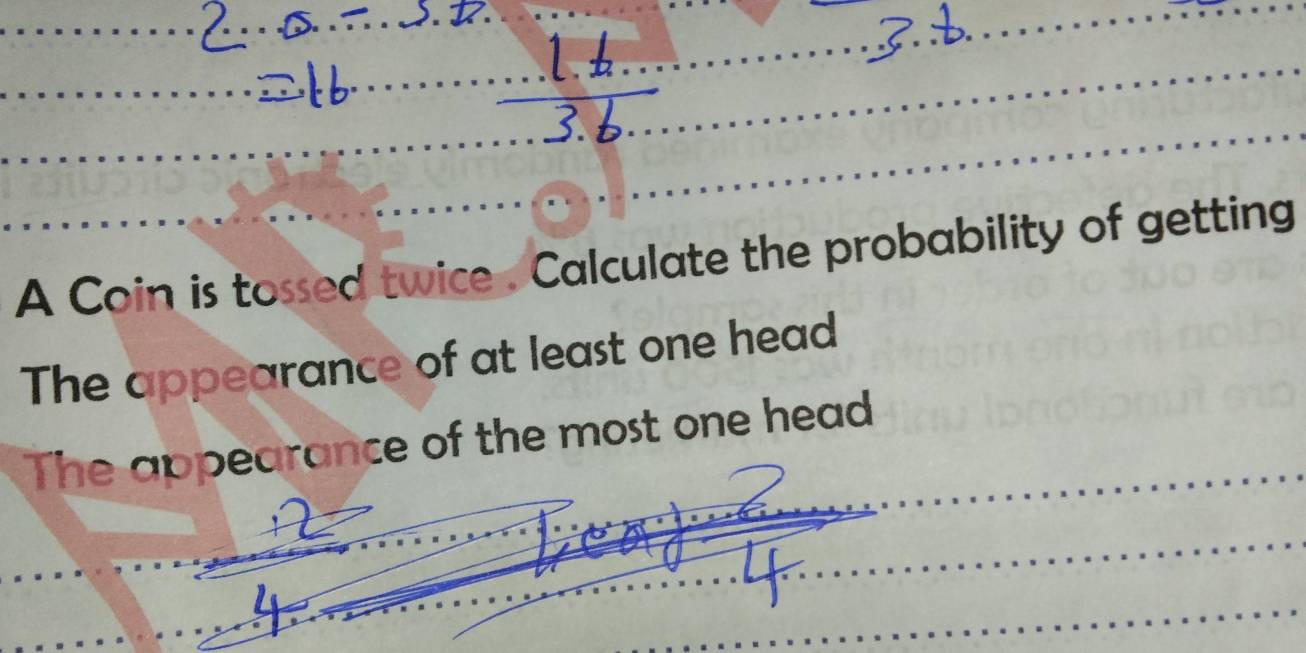 =16
16
36
36
A Coin is tossed twice . Calculate the probability of getting
The appearance of at least one head
The appearance of the most one head
2
4
2
4